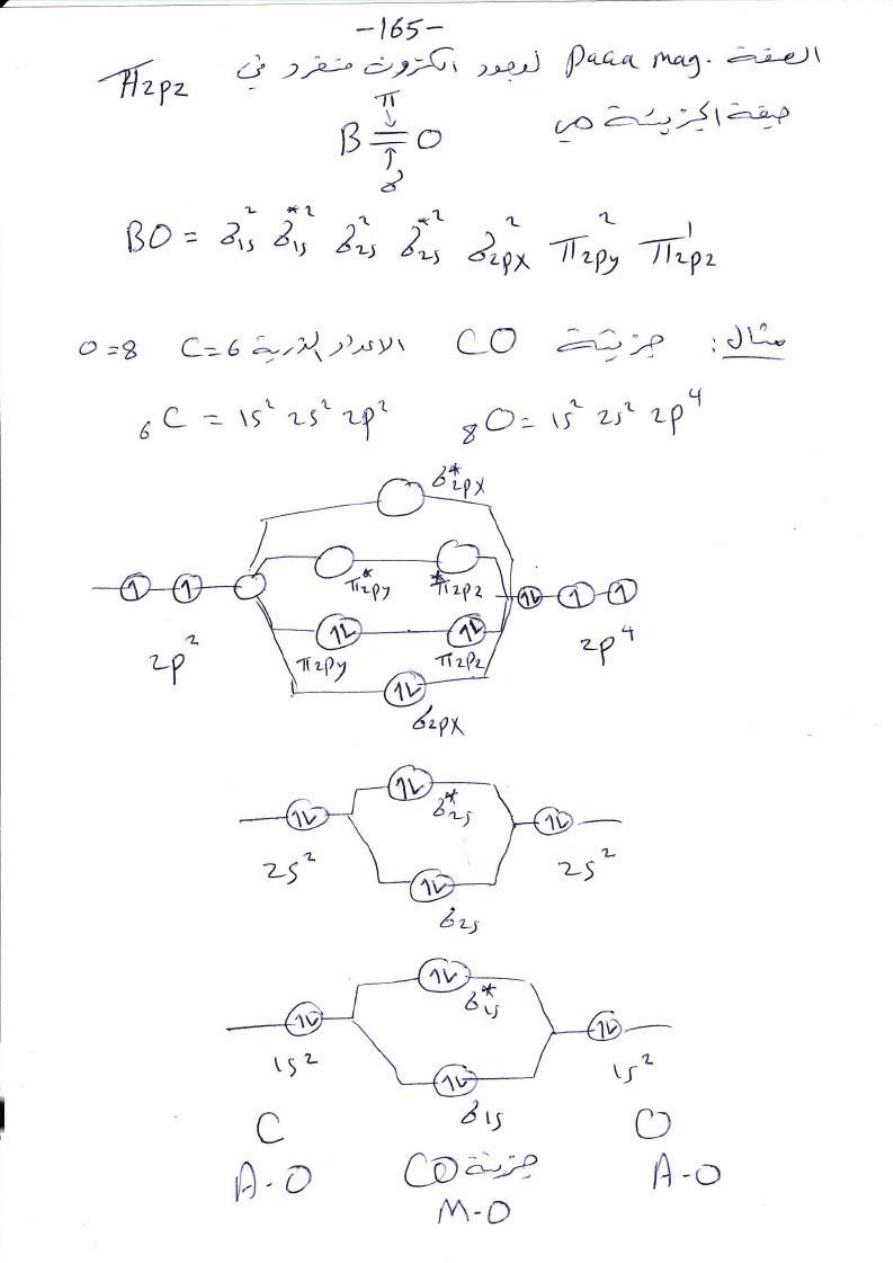 -165-
الصفة Para mag. لوجود الكترون منفرد في π2pz
صيغة الجزيئة هي
π
B = O
σ
BO = σ1s² σ*1s² σ2s² σ*2s² σ2px² π2py² π2pz¹
مثال: جزيئة CO الاعداد الذرية C=6 O=8
₆C = 1s² 2s² 2p² ₈O = 1s² 2s² 2p⁴
σ*2px
π*2py π*2pz
2p² 2p⁴
π2py π2pz
σ2px
σ*2s
2s² 2s²
σ2s
σ*1s
1s² 1s²
σ1s
C O
A-O جزيئة CO A-O
M-O